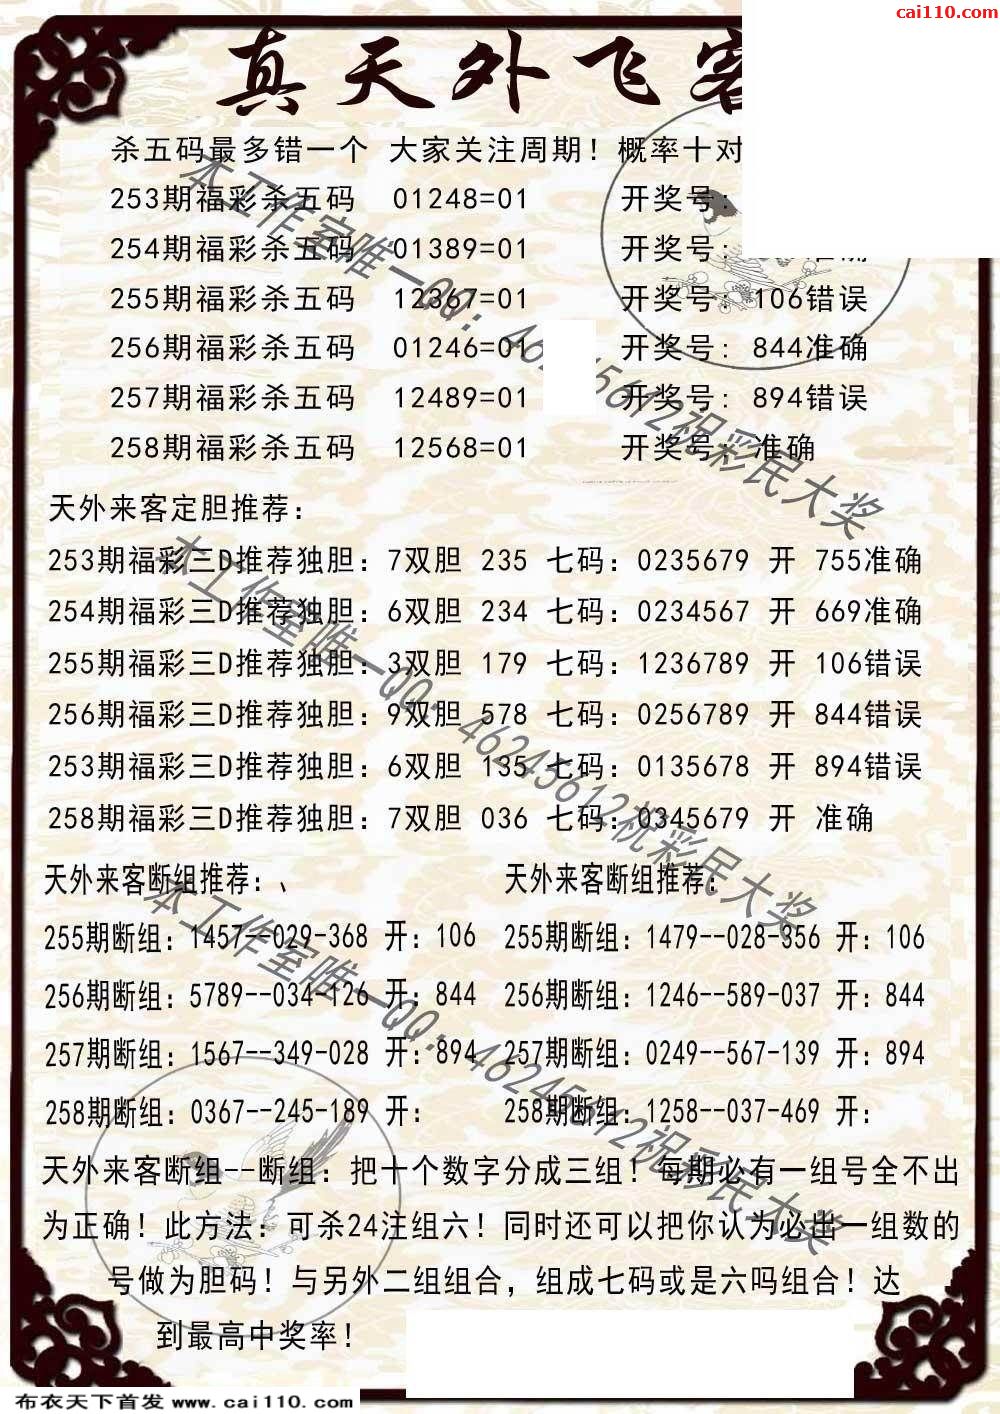 cai110.com
真天外飞客
杀五码最多错一个 大家关注周期！概率十对
253期福彩杀五码 01248=01 开奖号:
254期福彩杀五码 01389=01 开奖号: 准确
255期福彩杀五码 12367=01 开奖号: 106错误
256期福彩杀五码 01246=01 开奖号: 844准确
257期福彩杀五码 12489=01 开奖号: 894错误
258期福彩杀五码 12568=01 开奖号: 准确
天外来客定胆推荐:
253期福彩三D推荐独胆: 7双胆 235 七码: 0235679 开 755准确
254期福彩三D推荐独胆: 6双胆 234 七码: 0234567 开 669准确
255期福彩三D推荐独胆: 3双胆 179 七码: 1236789 开 106错误
256期福彩三D推荐独胆: 9双胆 578 七码: 0256789 开 844错误
253期福彩三D推荐独胆: 6双胆 135 七码: 0135678 开 894错误
258期福彩三D推荐独胆: 7双胆 036 七码: 0345679 开 准确
天外来客断组推荐: 、 天外来客断组推荐:
255期断组: 1457--029-368 开: 106 255期断组: 1479--028-356 开: 106
256期断组: 5789--034-126 开: 844 256期断组: 1246--589-037 开: 844
257期断组: 1567--349-028 开: 894 257期断组: 0249--567-139 开: 894
258期断组: 0367--245-189 开: 258期断组: 1258--037-469 开:
天外来客断组--断组: 把十个数字分成三组！每期必有一组号全不出
为正确！此方法: 可杀24注组六！同时还可以把你认为必出一组数的
号做为胆码！与另外二组组合，组成七码或是六吗组合！达
到最高中奖率！
本工作室唯一QQ: 46245612祝彩民大奖
本工作室唯一QQ: 46245612祝彩民大奖
本工作室唯一QQ: 46245612祝彩民大奖
布衣天下首发 www.cai110.com